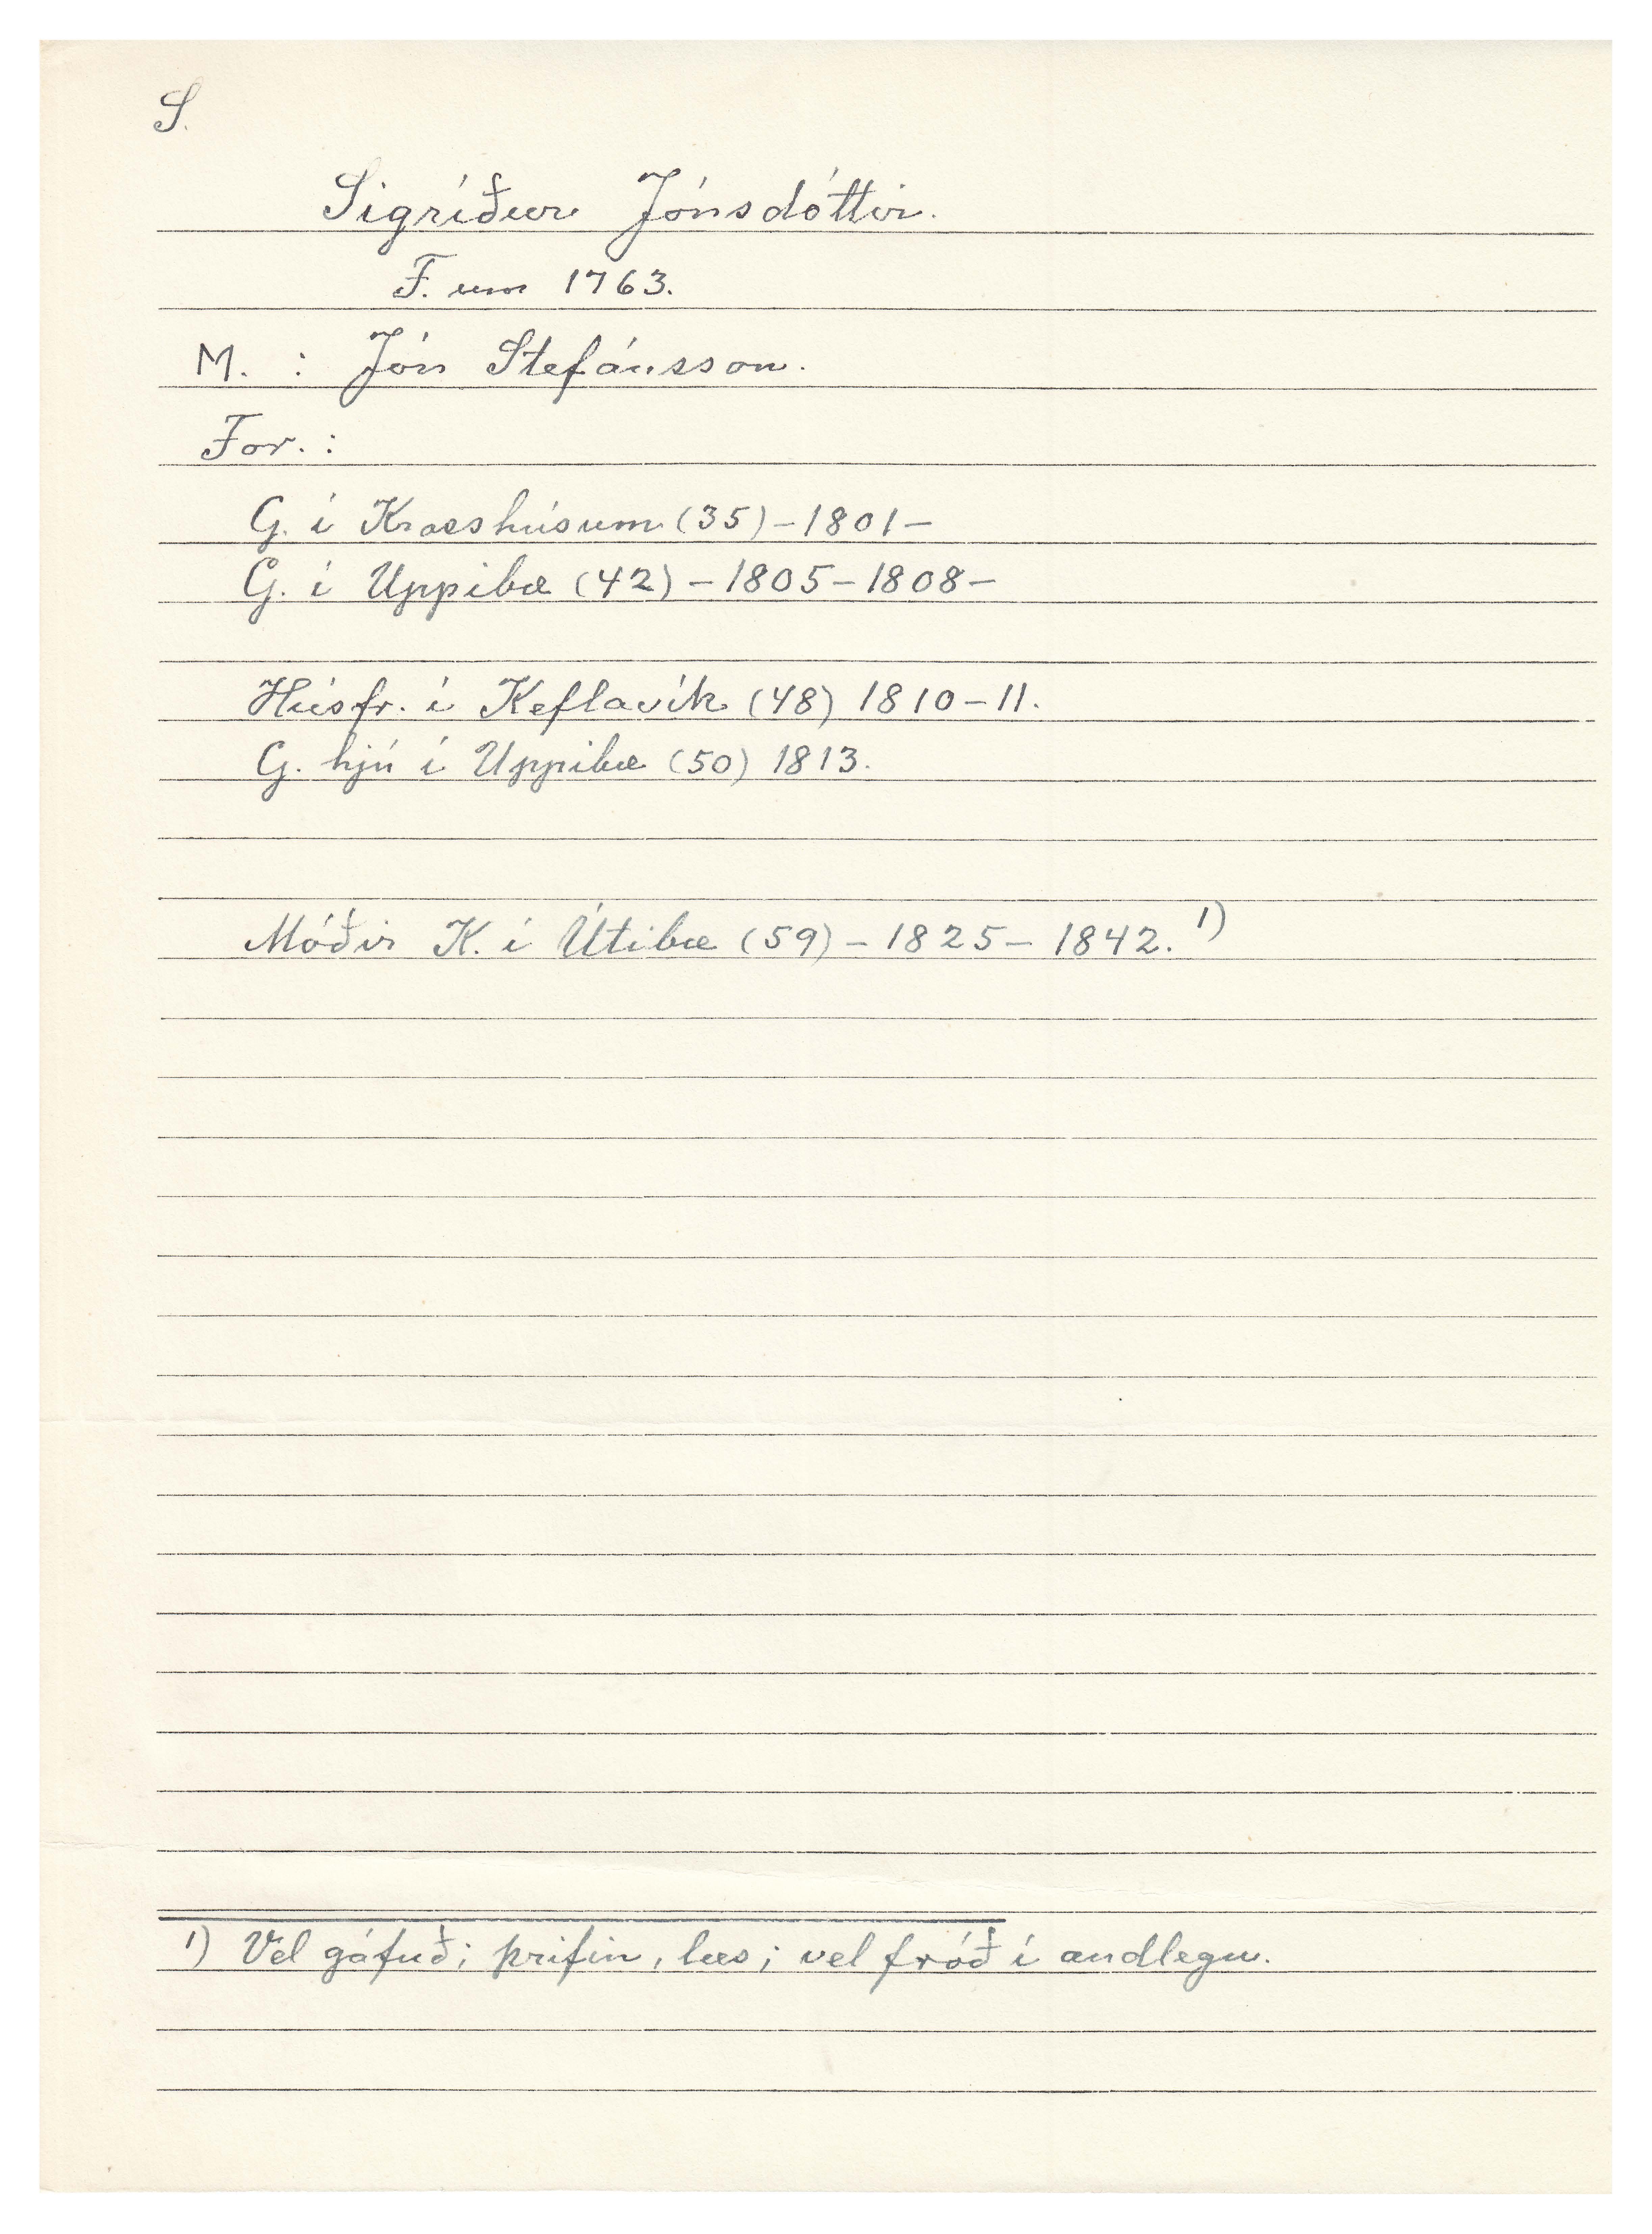 S.
Sigríður Jónsdóttir.
F. um 1763.
M. : Jón Stefánsson.
For. :
G. í Krosshúsum (35) – 1801 –
G. í Uppibæ (42) – 1805 – 1808 –
Húsfr. í Keflavík (48) 1810 – 11.
G. hjú í Uppibæ (50) 1813.
Móðir K. í Útibæ (59) – 1825 – 1842. 1)
1) Vel gáfuð; þrifin, læs; vel fróð í andlegu.